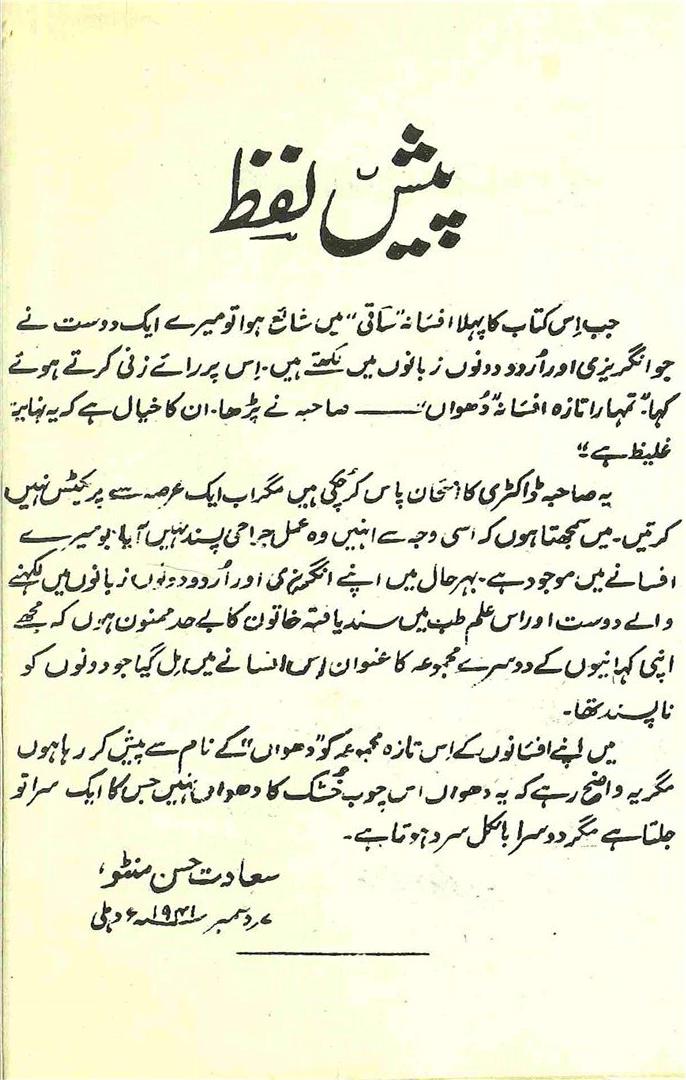 پیش لفظ
جب اِس کتاب کا پہلا افسانہ "ساقی" میں شائع ہوا تو میرے ایک دوست نے
جو انگریزی اور اُردو دونوں زبانوں میں لکھتے ہیں۔ اِس پر رائے زنی کرتے ہوئے
کہا "تمہارا تازہ افسانہ "دُھواں" ــــــــ صاحبہ نے پڑھا۔ ان کا خیال ہے کہ یہ نہایت
غلیظ ہے"
یہ صاحبہ ڈاکٹری کا امتحان پاس کر چکی ہیں مگر اب ایک عرصہ سے پریکٹس نہیں
کرتیں۔ میں سمجھتا ہوں کہ اسی وجہ سے انہیں وہ عمل جراحی پسند نہیں آیا۔ جو میرے
افسانے میں موجود ہے۔ بہر حال میں اپنے انگریزی اور اُردو دونوں زبانوں میں لکھنے
والے دوست اور اس علم طب میں سند یافتہ خاتون کا بے حد ممنون ہوں کہ مجھے
اپنی کہانیوں کے دوسرے مجموعہ کا عنوان اِس افسانے میں مل گیا جو دونوں کو
ناپسند تھا۔
میں اپنے افسانوں کے اِس تازہ مجموعہ کو "دھواں" کے نام سے پیش کر رہا ہوں
مگر یہ واضح رہے کہ یہ دھواں اس چوب خُشک کا دھواں نہیں جس کا ایک سرا تو
جلتا ہے مگر دوسرا بالکل سرد ہوتا ہے۔
سعادت حسن منٹو،
۷ر دسمبر ۱۹۴۱ء دہلی